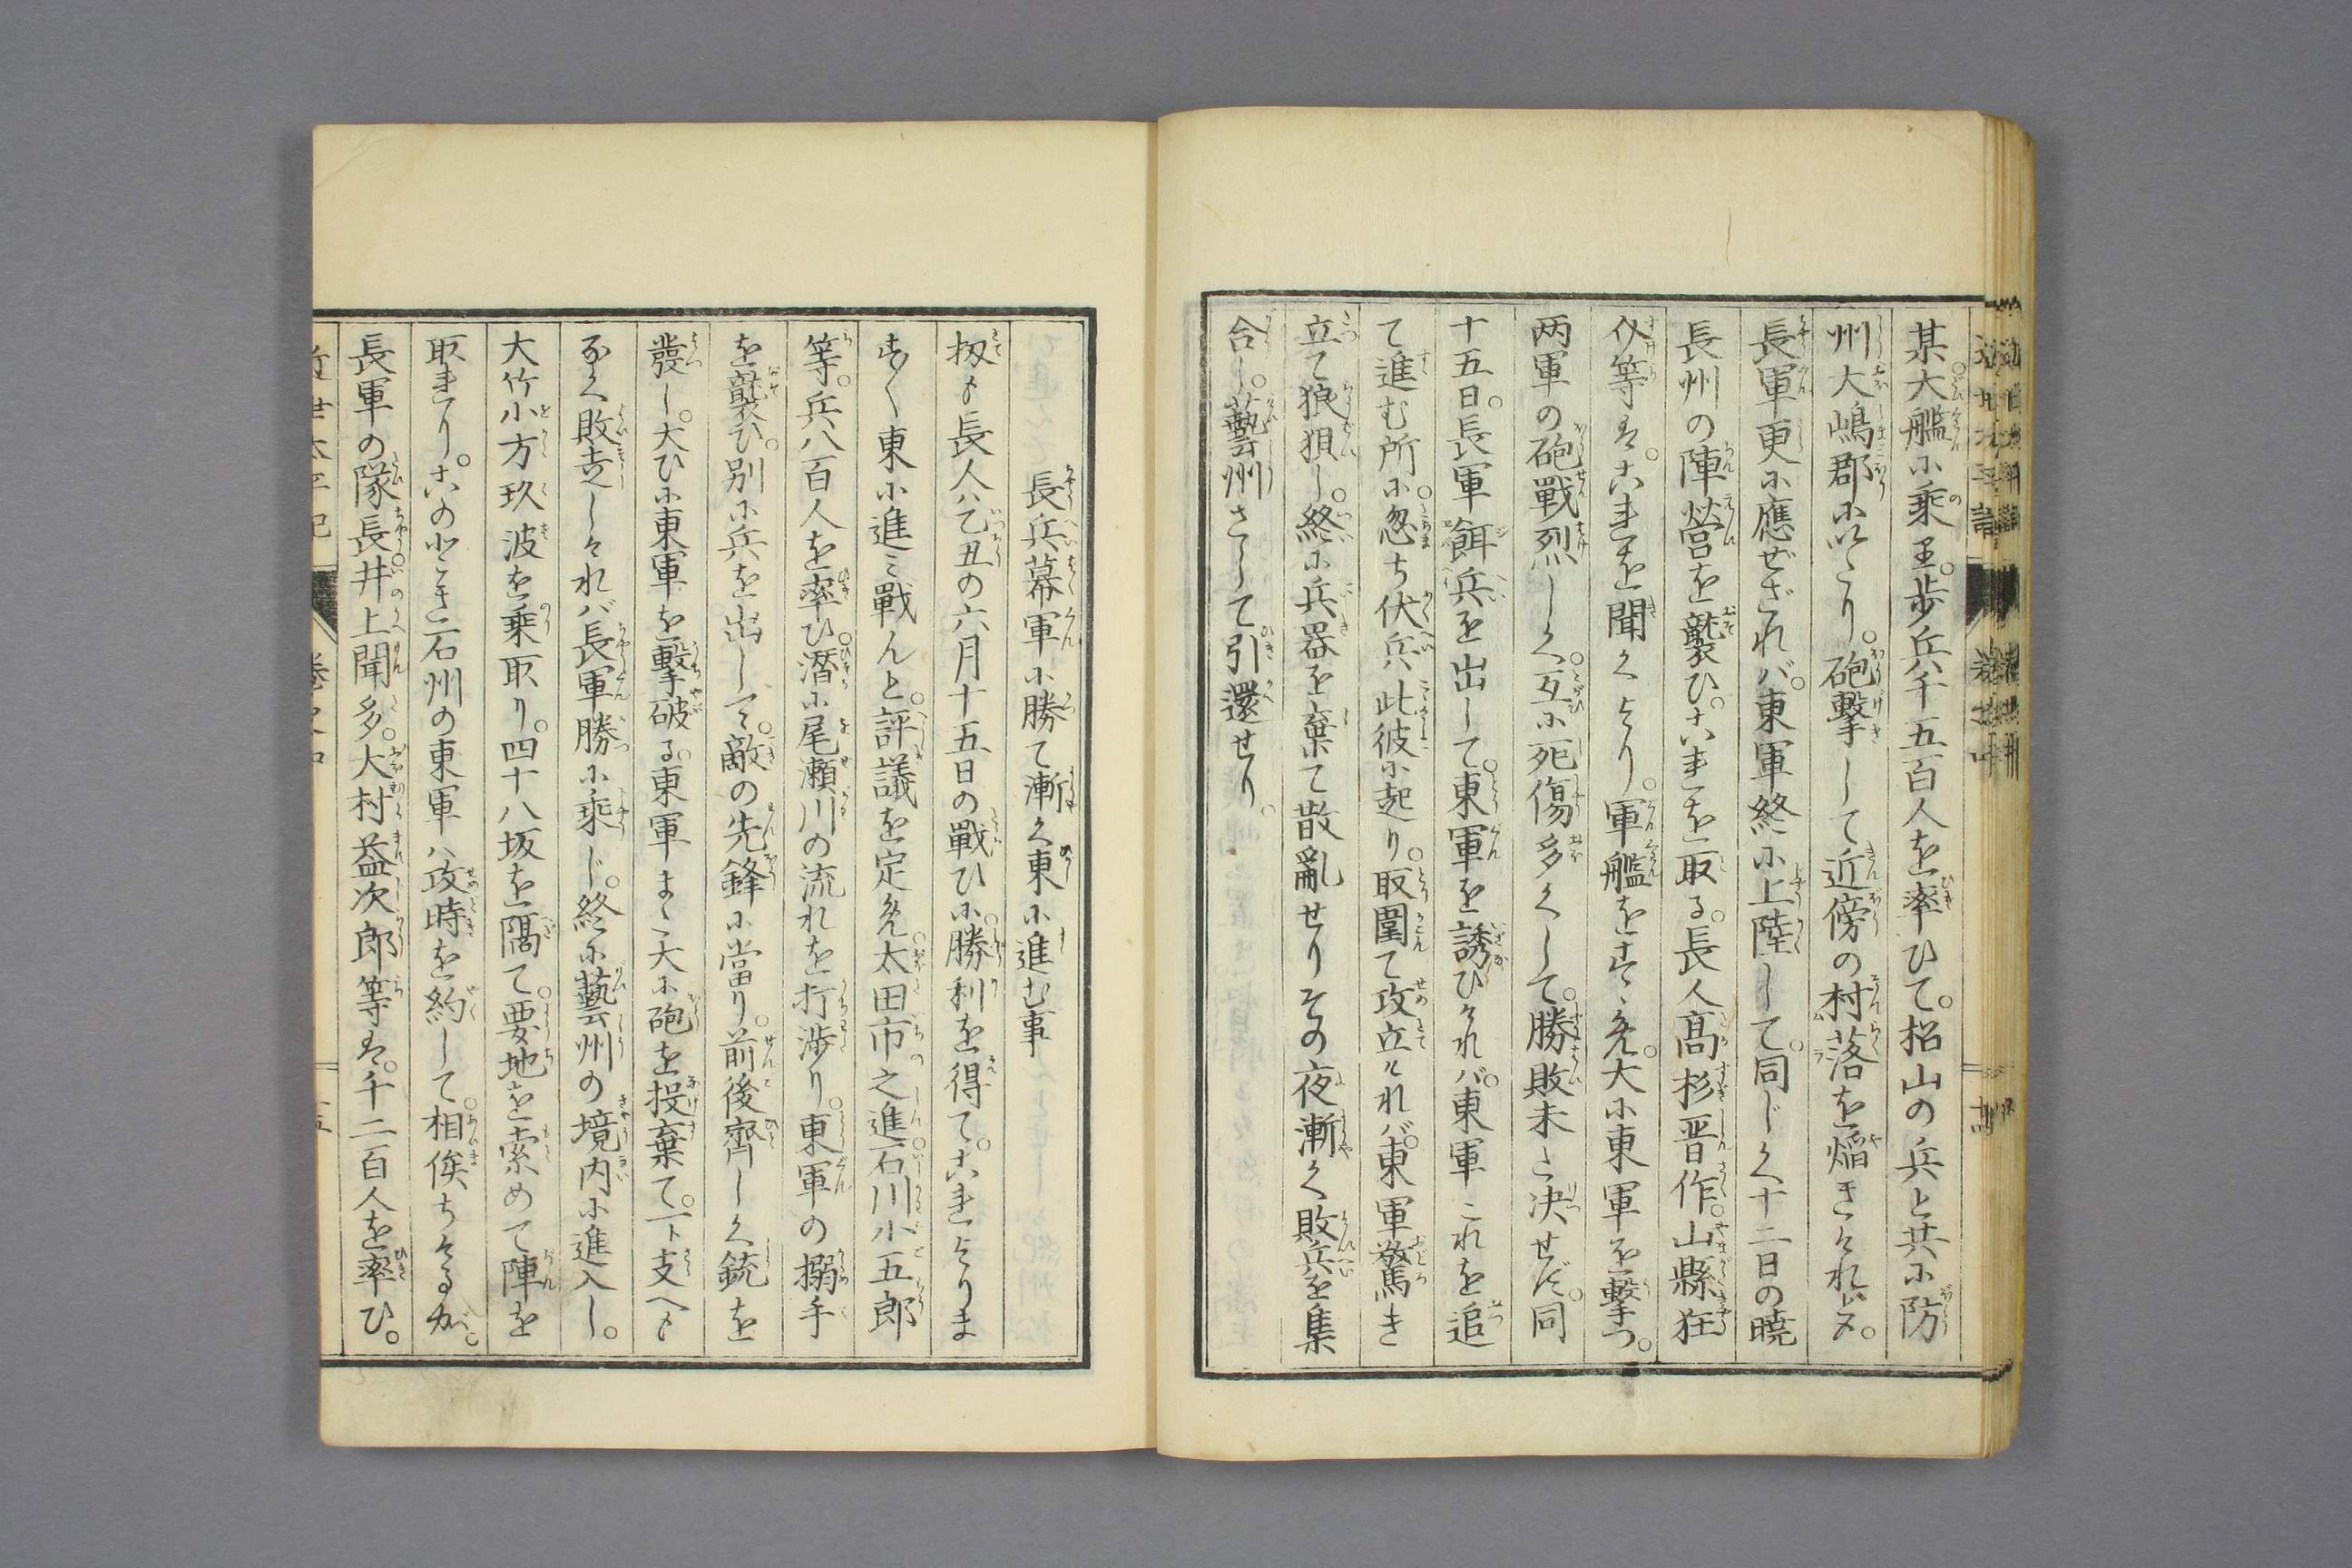 某大艦に乗り。歩兵千五百人を率ひて。松山の兵と共に防
州大嶋郡にいたり。砲撃して近傍の村落を焔きけれども。
長軍更に應ぜざれバ。東軍終に上陸して。同じく十二日の曉
長州の陣營を襲ひ。これを取る。長人髙杉晋作。山縣狂
介等ハ。これを聞くより。軍艦をすゝめ。大に東軍を撃つ。
两軍の砲戰烈しく。互に死傷多くして。勝敗未た決せず。同
十五日。長軍餌兵を出して。東軍を誘ひけれバ。東軍これを追
て進む所に。忽ち伏兵此彼に起り。取圍て攻立けれバ。東軍驚き
立て狼狽し。終に兵器を棄て散亂せりその夜漸く敗兵を集
合し。藝州さして引還せり。
長兵幕軍に勝て漸く東に進む事
扨も長人ハ乙丑の六月十五日の戰ひに。勝利を得て。これよりま
すく東に進ミ戰んと。評議を定め。太田市之進。石川小五郎
等。兵八百人を率ひ。潛に尾瀬川の流れを打渉り。東軍の搦手
を襲ひ。別に兵を出して。敵の先鋒に當り。前後齊しく銃を
發し。大ひに東軍を撃破る。東軍また大に砲を投棄て。一ト支へも
なく敗走しけれバ。長軍勝に乗じ。終に藝州の境内に進入し。
大竹小方玖波を乗取り。四十八坂を隔て。要地を索めて陣を
取れり。このとき石州の東軍ハ攻時を約して。相俟ちけるが。
長軍の隊長。井上聞多。大村益次郎等ハ。千二百人を率ひ。
近世太平記